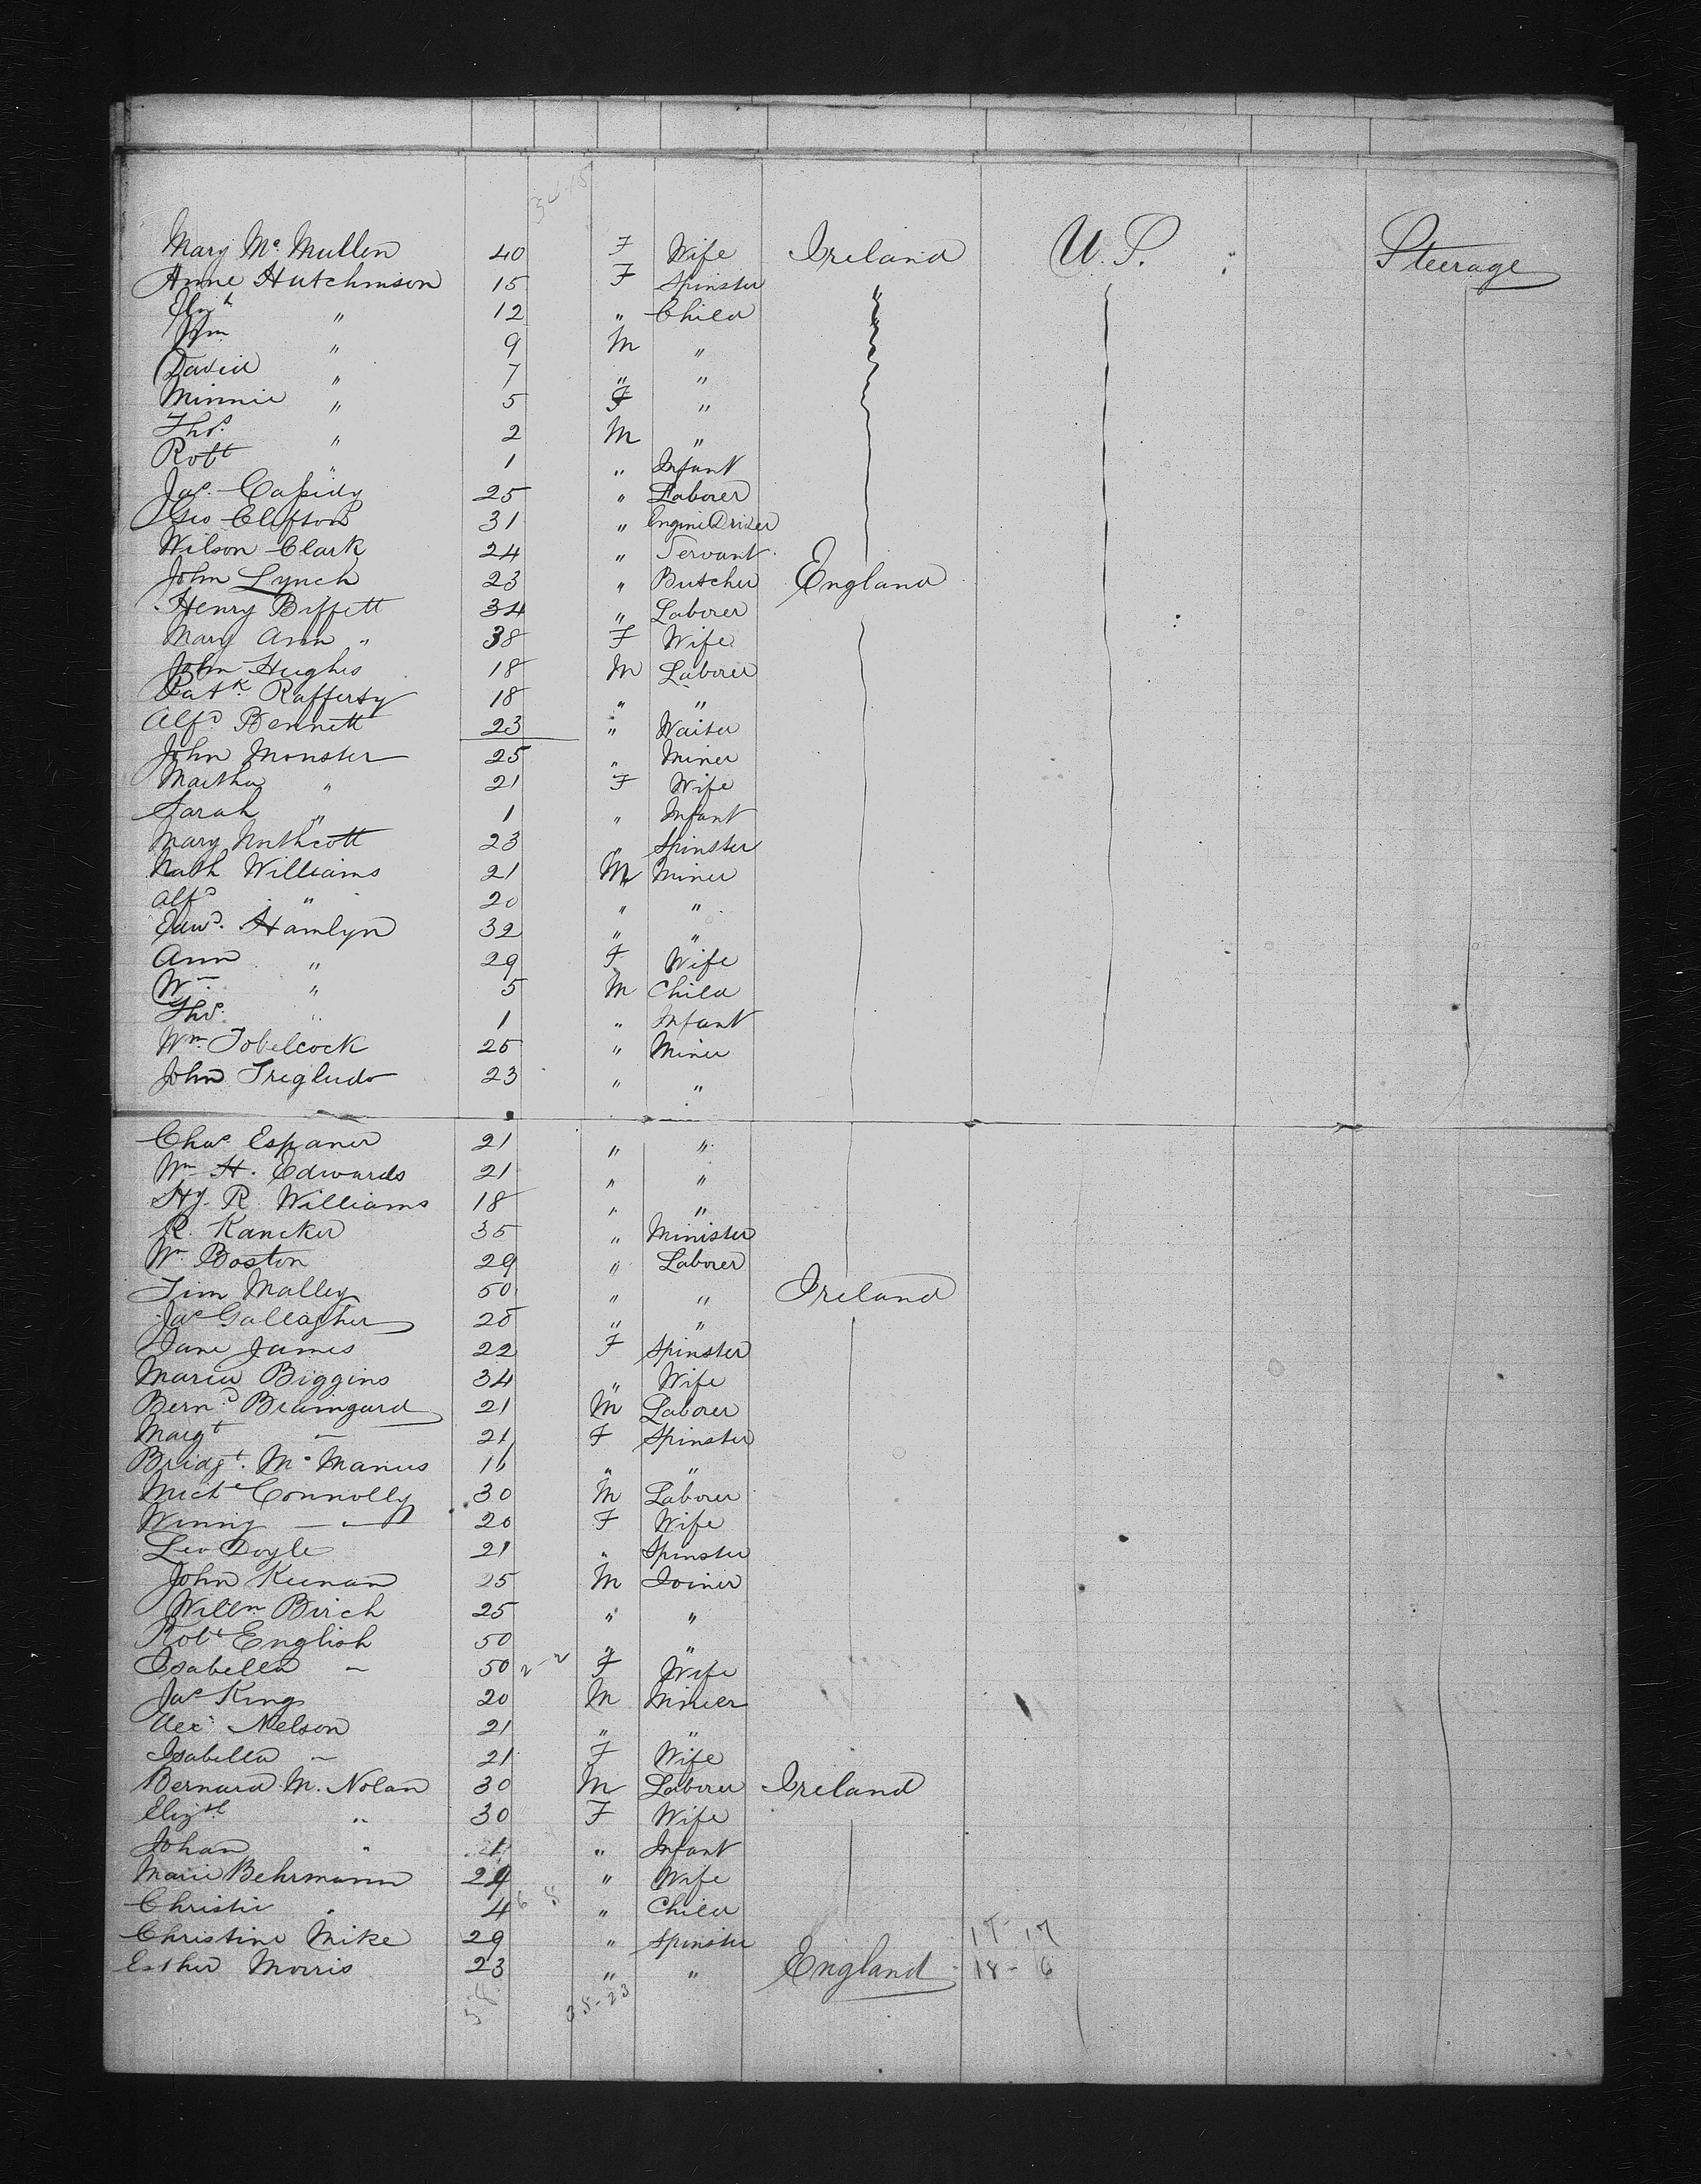 Mary Mc. Mullen 40 F Wife Ireland U.S. Steerage
Anne Hutchinson 15 F Spinster "
Eliz.h " 12 " Child "
Wm " 9 M "
David " 7 " "
Minnie " 5 F "
Thos. " 2 M "
Robt " 1 " Infant
Jas. Cassidy 25 " Laborer
Geo Clifton 31 " Engine Driver
Wilson Clark 24 " Servant
John Lynch 23 " Butcher England
Henry Biffett 34 " Laborer
Mary Ann " 38 F Wife
John Hughes 18 M Laborer
Patk. Rafferty 18 " "
Alfd. Bennett 23 " Waiter
John Monster 25 " Miner
Martha " 21 F Wife
Sarah " 1 " Infant
Mary Northcott 23 " Spinster
Nath Williams 21 M Miner
Alfd " 20 " "
Edwd. Hamlyn 32 " "
Ann " 29 F Wife
Wm. " 5 M Child
Thos. " 1 " Infant
Wm. Tobelcock 25 " Miner
John 23 " "
Chas. Espaner 21 " "
Wm H. Edwards 21 " "
Hy. R. Williams 18 " "
R. Kancker 35 " Minister
Wm Boston 29 " Laborer
Tim Malley 50 " " Ireland
Jas Gallagher 25 " "
Jane James 22 F Spinster
Maria Biggins 34 " Wife
Bernd. 21 M Laborer
Margt — 21 F Spinster
Bridgt. Mc Manus 16 " "
Michl Connolly 30 M Laborer
Winny — 20 F Wife
Doyle 21 " Spinster
John Keenan 25 M Joiner
Willm Birch 25 " "
Robt English 50 " "
Isabella — 50 2-2 F Wife
Jas King 20 M Miner
Alex. Nelson 21 " "
Isabella — 21 F Wife
Bernard M. Nolan 30 M Laborer Ireland
Elizth " 30 F Wife
Johan " 1 " Infant
Marie Behrmann 24 " Wife
Christie " 4 6 8 " Child
Christine Mike 29 " Spinster 17-17
Esther Morris 23 " " England 18-6
58 35-23